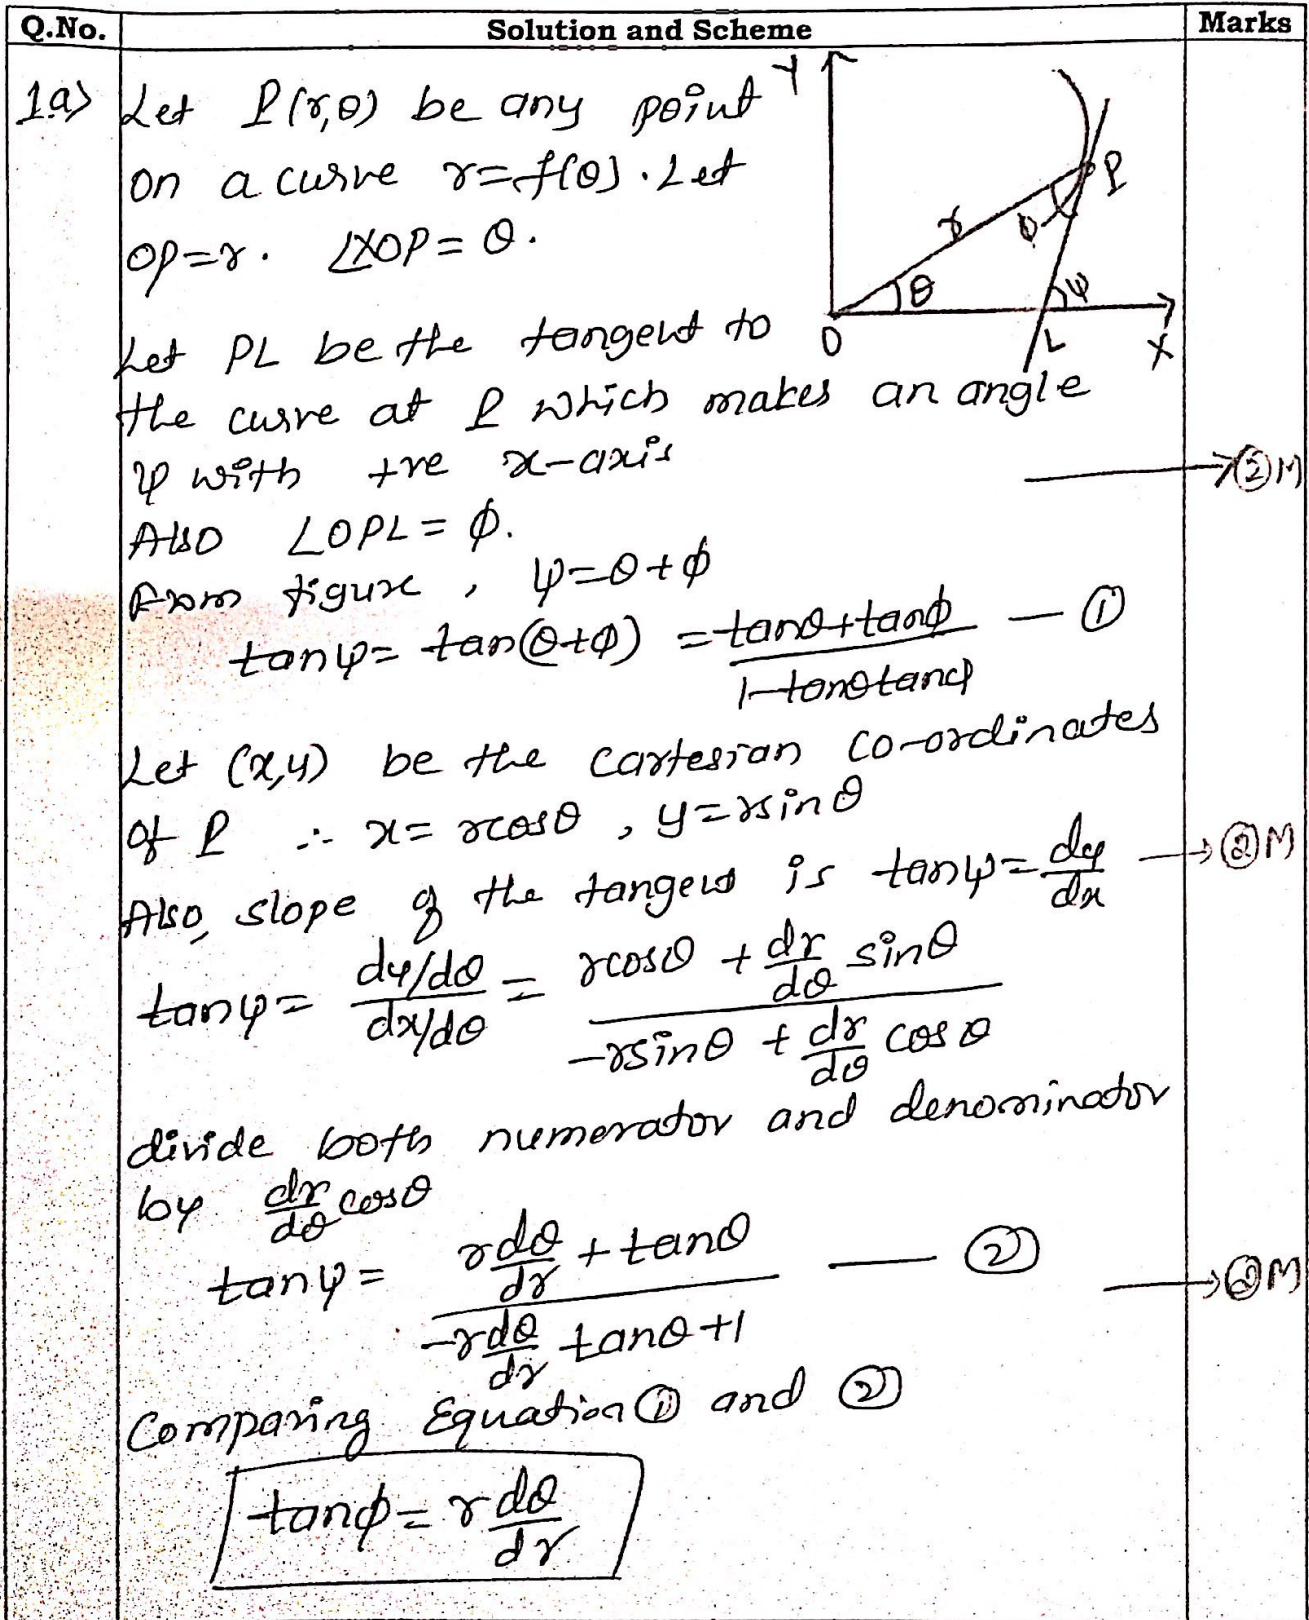 Q.No. Solution and Scheme Marks
1.a) Let P(r,θ) be any point
on a curve r=f(θ). Let
OP=r. ∠XOP=θ.
Y
P
r
φ
θ
ψ
O
L
X
Let PL be the tangent to
the curve at P which makes an angle
ψ with +ve x-axis → ② M
Also ∠OPL = φ.
From figure, ψ=θ+φ
tanψ = tan(θ+φ) = (tanθ+tanφ)/(1-tanθtanφ) — ①
Let (x,y) be the cartesian co-ordinates
of P ∴ x= rcosθ, y=rsinθ
Also, slope of the tangent is tanψ = dy/dx → ② M
tanψ = (dy/dθ)/(dx/dθ) = (rcosθ + dr/dθ sinθ)/(-rsinθ + dr/dθ cosθ)
divide both numerator and denominator
by dr/dθ cosθ
tanψ = (r dθ/dr + tanθ)/(-r dθ/dr tanθ+1) — ② → ② M
Comparing Equation ① and ②
tanφ = r dθ/dr